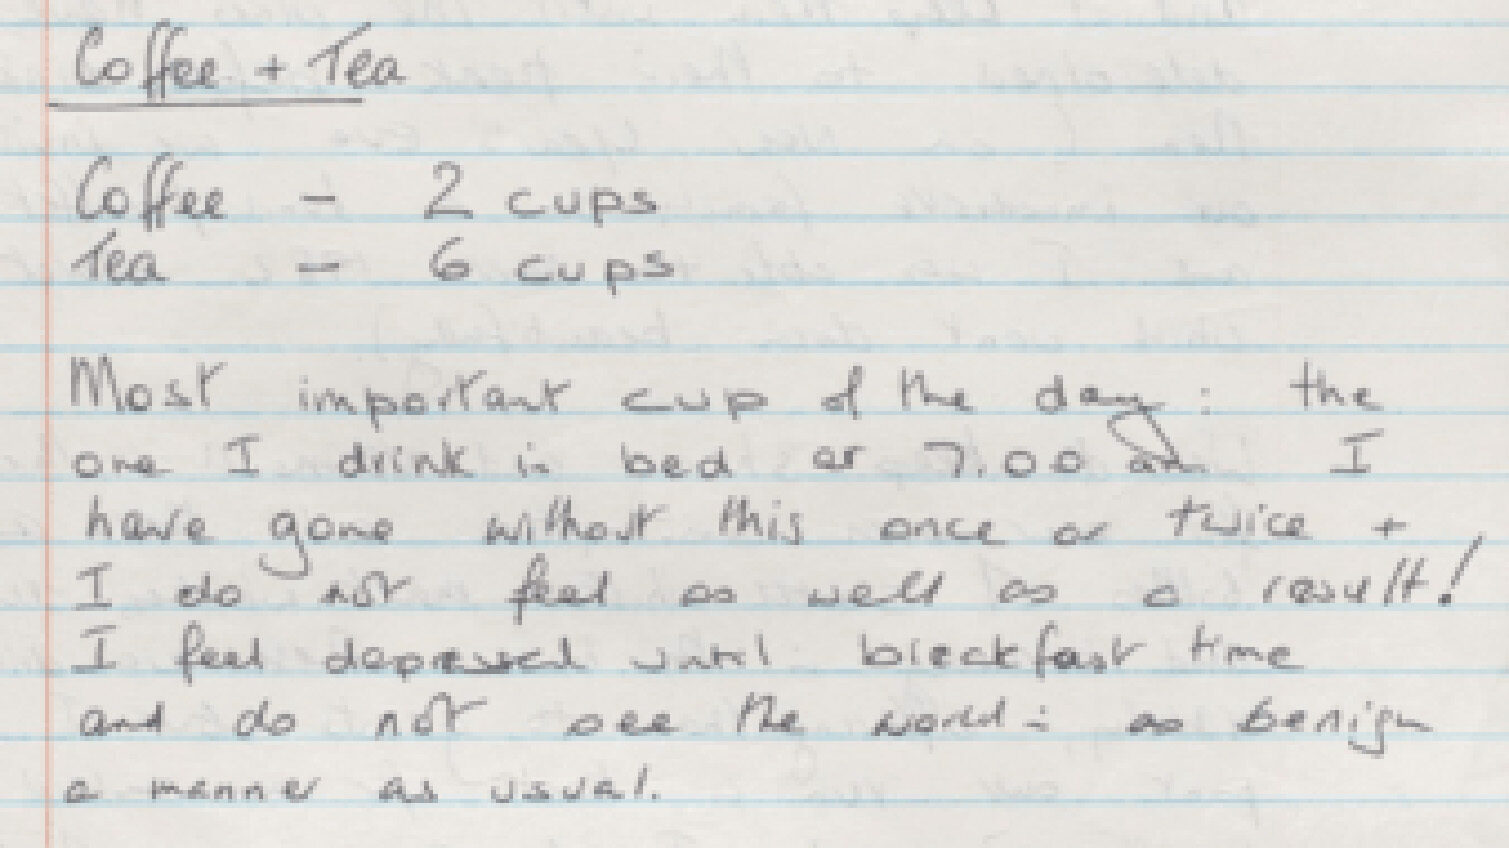 Coffee + Tea
Coffee - 2 cups
Tea - 6 cups
Most important cup of the day: the
one I drink in bed at 7.00 am I
have gone without this once or twice +
I do not feel as well as a result!
I feel depressed until breakfast time
and do not see the world in as benign
a manner as usual.